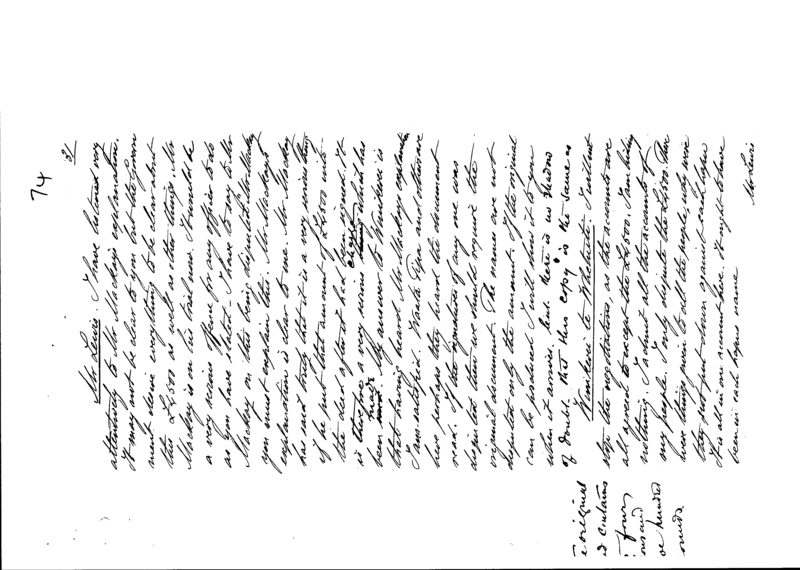 74
2/
Mr Lewis. I have listened very
attentively to Mr. Mackay's explanation.
It may not be clear to you but the Govern
ment desire everything to be clear about
this £4,500 as well as other things. Mr
Mackay is on his trial now. It would be
a very serious offence for any officer to do
as you have stated. I have to say to Mr
Mackay on this being disputed "Mr Mackay
you must explain this. Mr. Mackay's
explanation is clear to me. Mr Mackay
has said truly that it is a very serious thing
if he put that amount of £4,500 into
the deed after it had been signed. It
is therefore a very serious charge which has
been made. My answer to you then is
that having heard Mr. Mackay explain
I am satisfied. Karaitiana and others
here perhaps they heard the document
read. If the signatures of any one was
disputed then we should require the
original document. The names are not
disputed only the amount. If the original
can be produced I will shew it to you
when it arrives but there is no shadow
of doubt that this copy is the same as
e original
d contains
four
ousand
ve hundred
ounds
to Whakatane. I will not
stop the negotiations, as the accounts are
all agreed to except the £4,500. I am hiding
nothing. I admit all the accounts of
my people. I only dispute the £4,500. There
were things given to all the people, why were
they not put down against each hapu
It is all in one account here. It ought to have
been in each hapus name
Mr Lewis